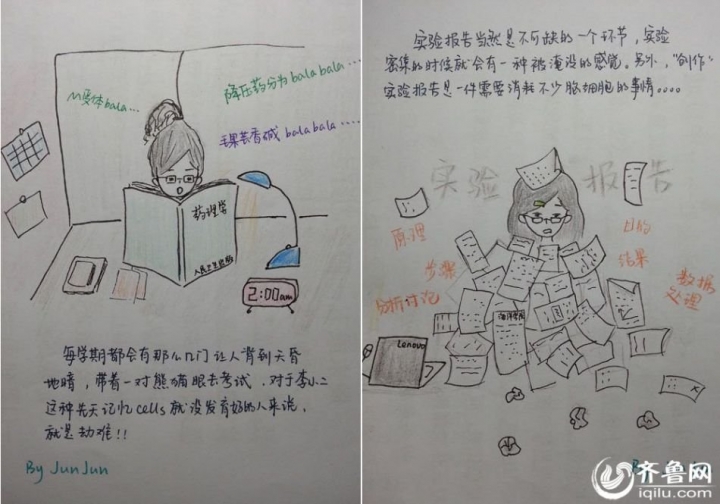 M受体bala...
降压药分为balabala....
毛果芸香碱balabala....
药理学
人民卫生出版
2:00am
每学期都会有那么几门让人背到天昏
地暗，带着一对熊猫眼去考试．对于李小二
这种先天记忆cells就没发育好的人来说，
就是劫难!!
By JunJun
实验报告当然是不可缺的一个环节，实验
密集的时候就会有一种被淹没的感觉。另外，“创作”
实验报告是一件需要消耗不少脑细胞的事情....
实验报告
原理
目的
步骤
结果
分析讨论
数据
处理
Lenovo
齐鲁网
iqilu.com